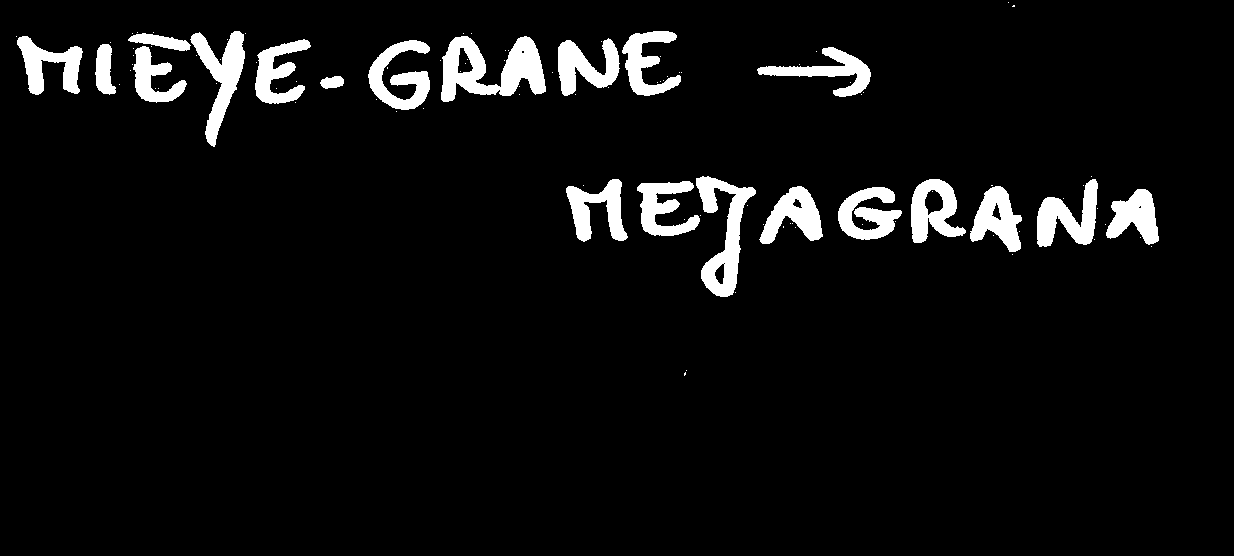 MIEYE-GRANE →
MEJAGRANA